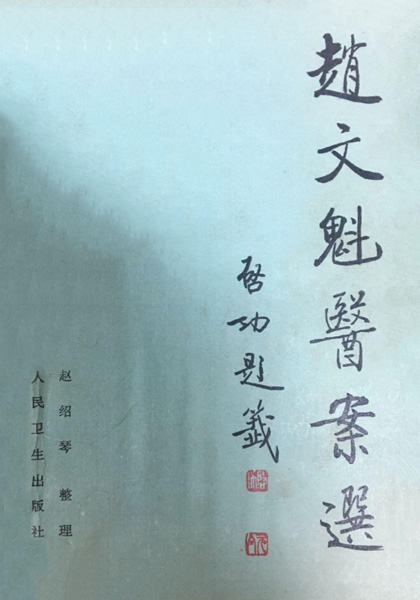 趙文魁醫案選
啓功題籤
赵绍琴 整理
人民卫生出版社